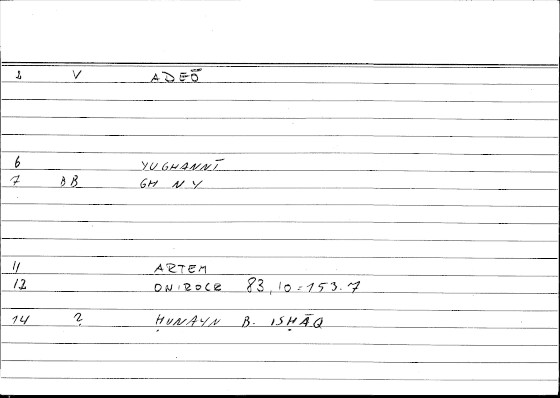 1 V ADEŌ
6 YUGHANNĪ
7 BB GH N Y
11 ARTEM
12 ONIROCR 83,10=153.7
14 2 ḤUNAYN B. ISḤĀQ